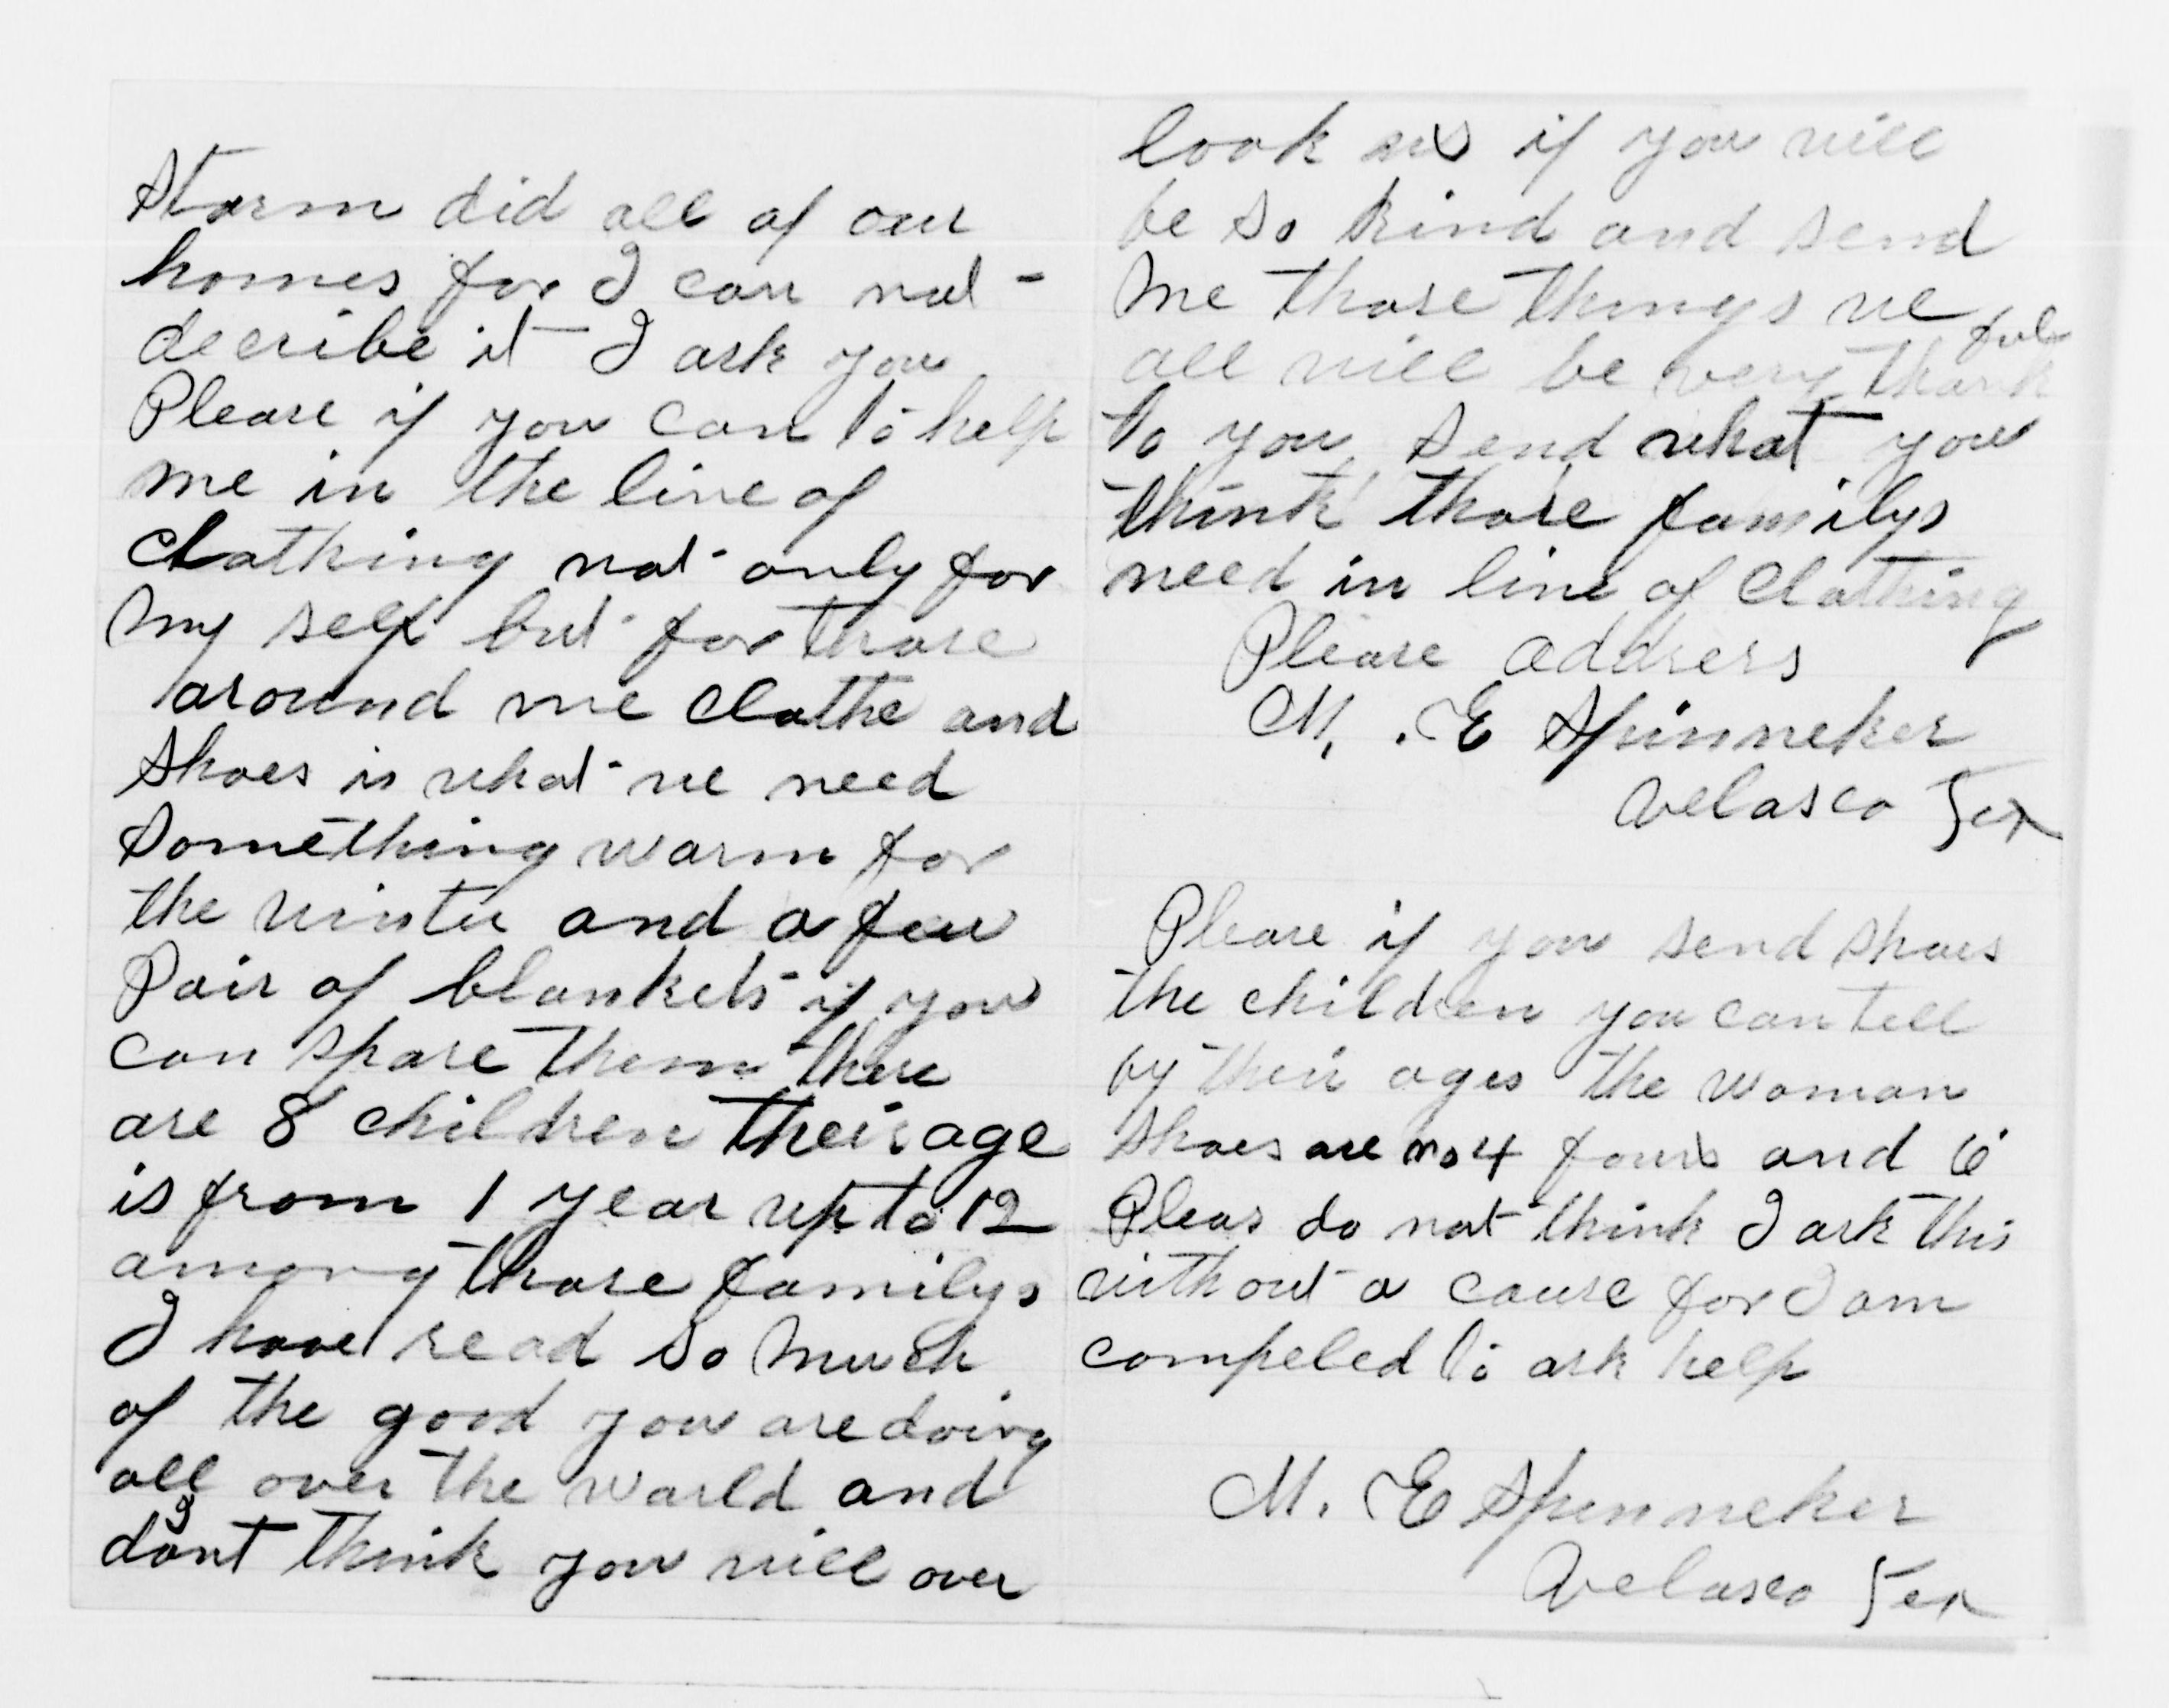 Storm did all of our
homes for I can not
decribe it I ask you
Please if you can to help
me in the line of
Clothing not only for
My self but for those
around me Clothe and
Shoes is what we need
Something warm for
the winter and a few
Pair of blankets if you
can spare them there
are 8 children their age
is from 1 year up to 12
among those familys
I have read so Much
of the good you are doing
all over the world and
I dont think you will over
look us if you will
be so kind and send
Me those things we
all will be very thankful
to you send what you
think those familys
need in line of Clothing
Please address
M. E Spinneker
Velasco Tex
Please if you send shoes
the children you can tell
by their ages the woman
Shoes are no 4 fours and 6
Pleas do not think I ask this
without a cause for I am
compeled to ask help
M. E Spinneker
Velasco Tex